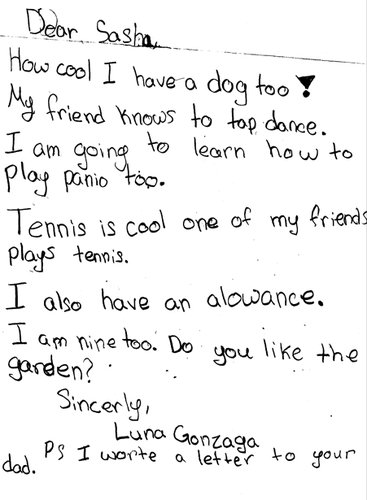 Dear Sasha,
How cool I have a dog too!
My friend knows to tap dance.
I am going to learn how to
play panio too.
Tennis is cool one of my friends
plays tennis.
I also have an alowance.
I am nine too. Do you like the
garden?
Sincerly,
Luna Gonzaga
PS I worte a letter to your
dad.